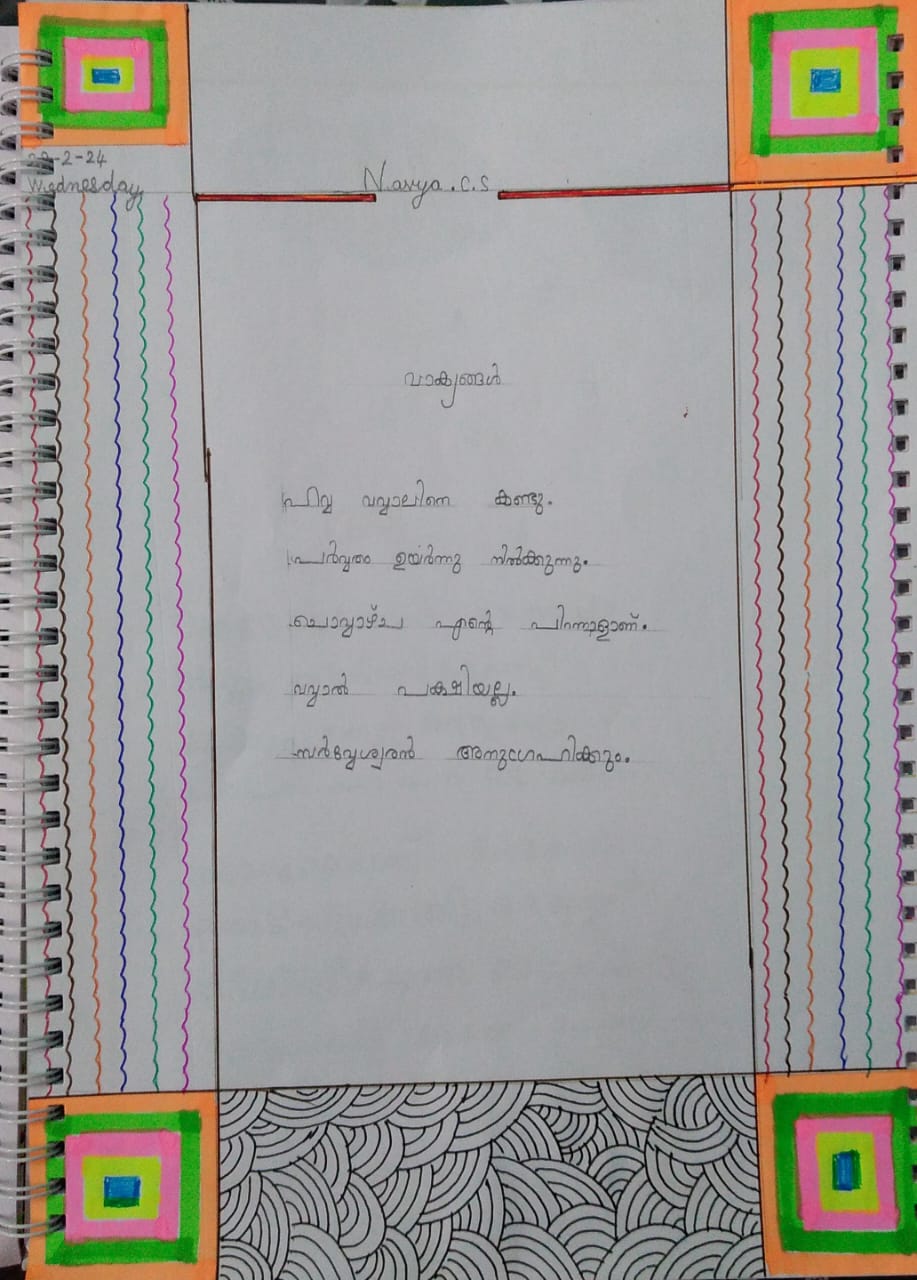 -2-24
Wednesday
Navya.C.S
വാക്യങ്ങൾ
ഹവ്വ വവ്വാലിനെ കണ്ടു.
പർവ്വതം ഉയർന്നു നിൽക്കുന്നു.
ചൊവ്വാഴ്ച എന്റെ പിറന്നാളാണ്.
വവ്വാൽ പക്ഷിയല്ല.
സർവ്വേശ്വരൻ അനുഗ്രഹിക്കും.